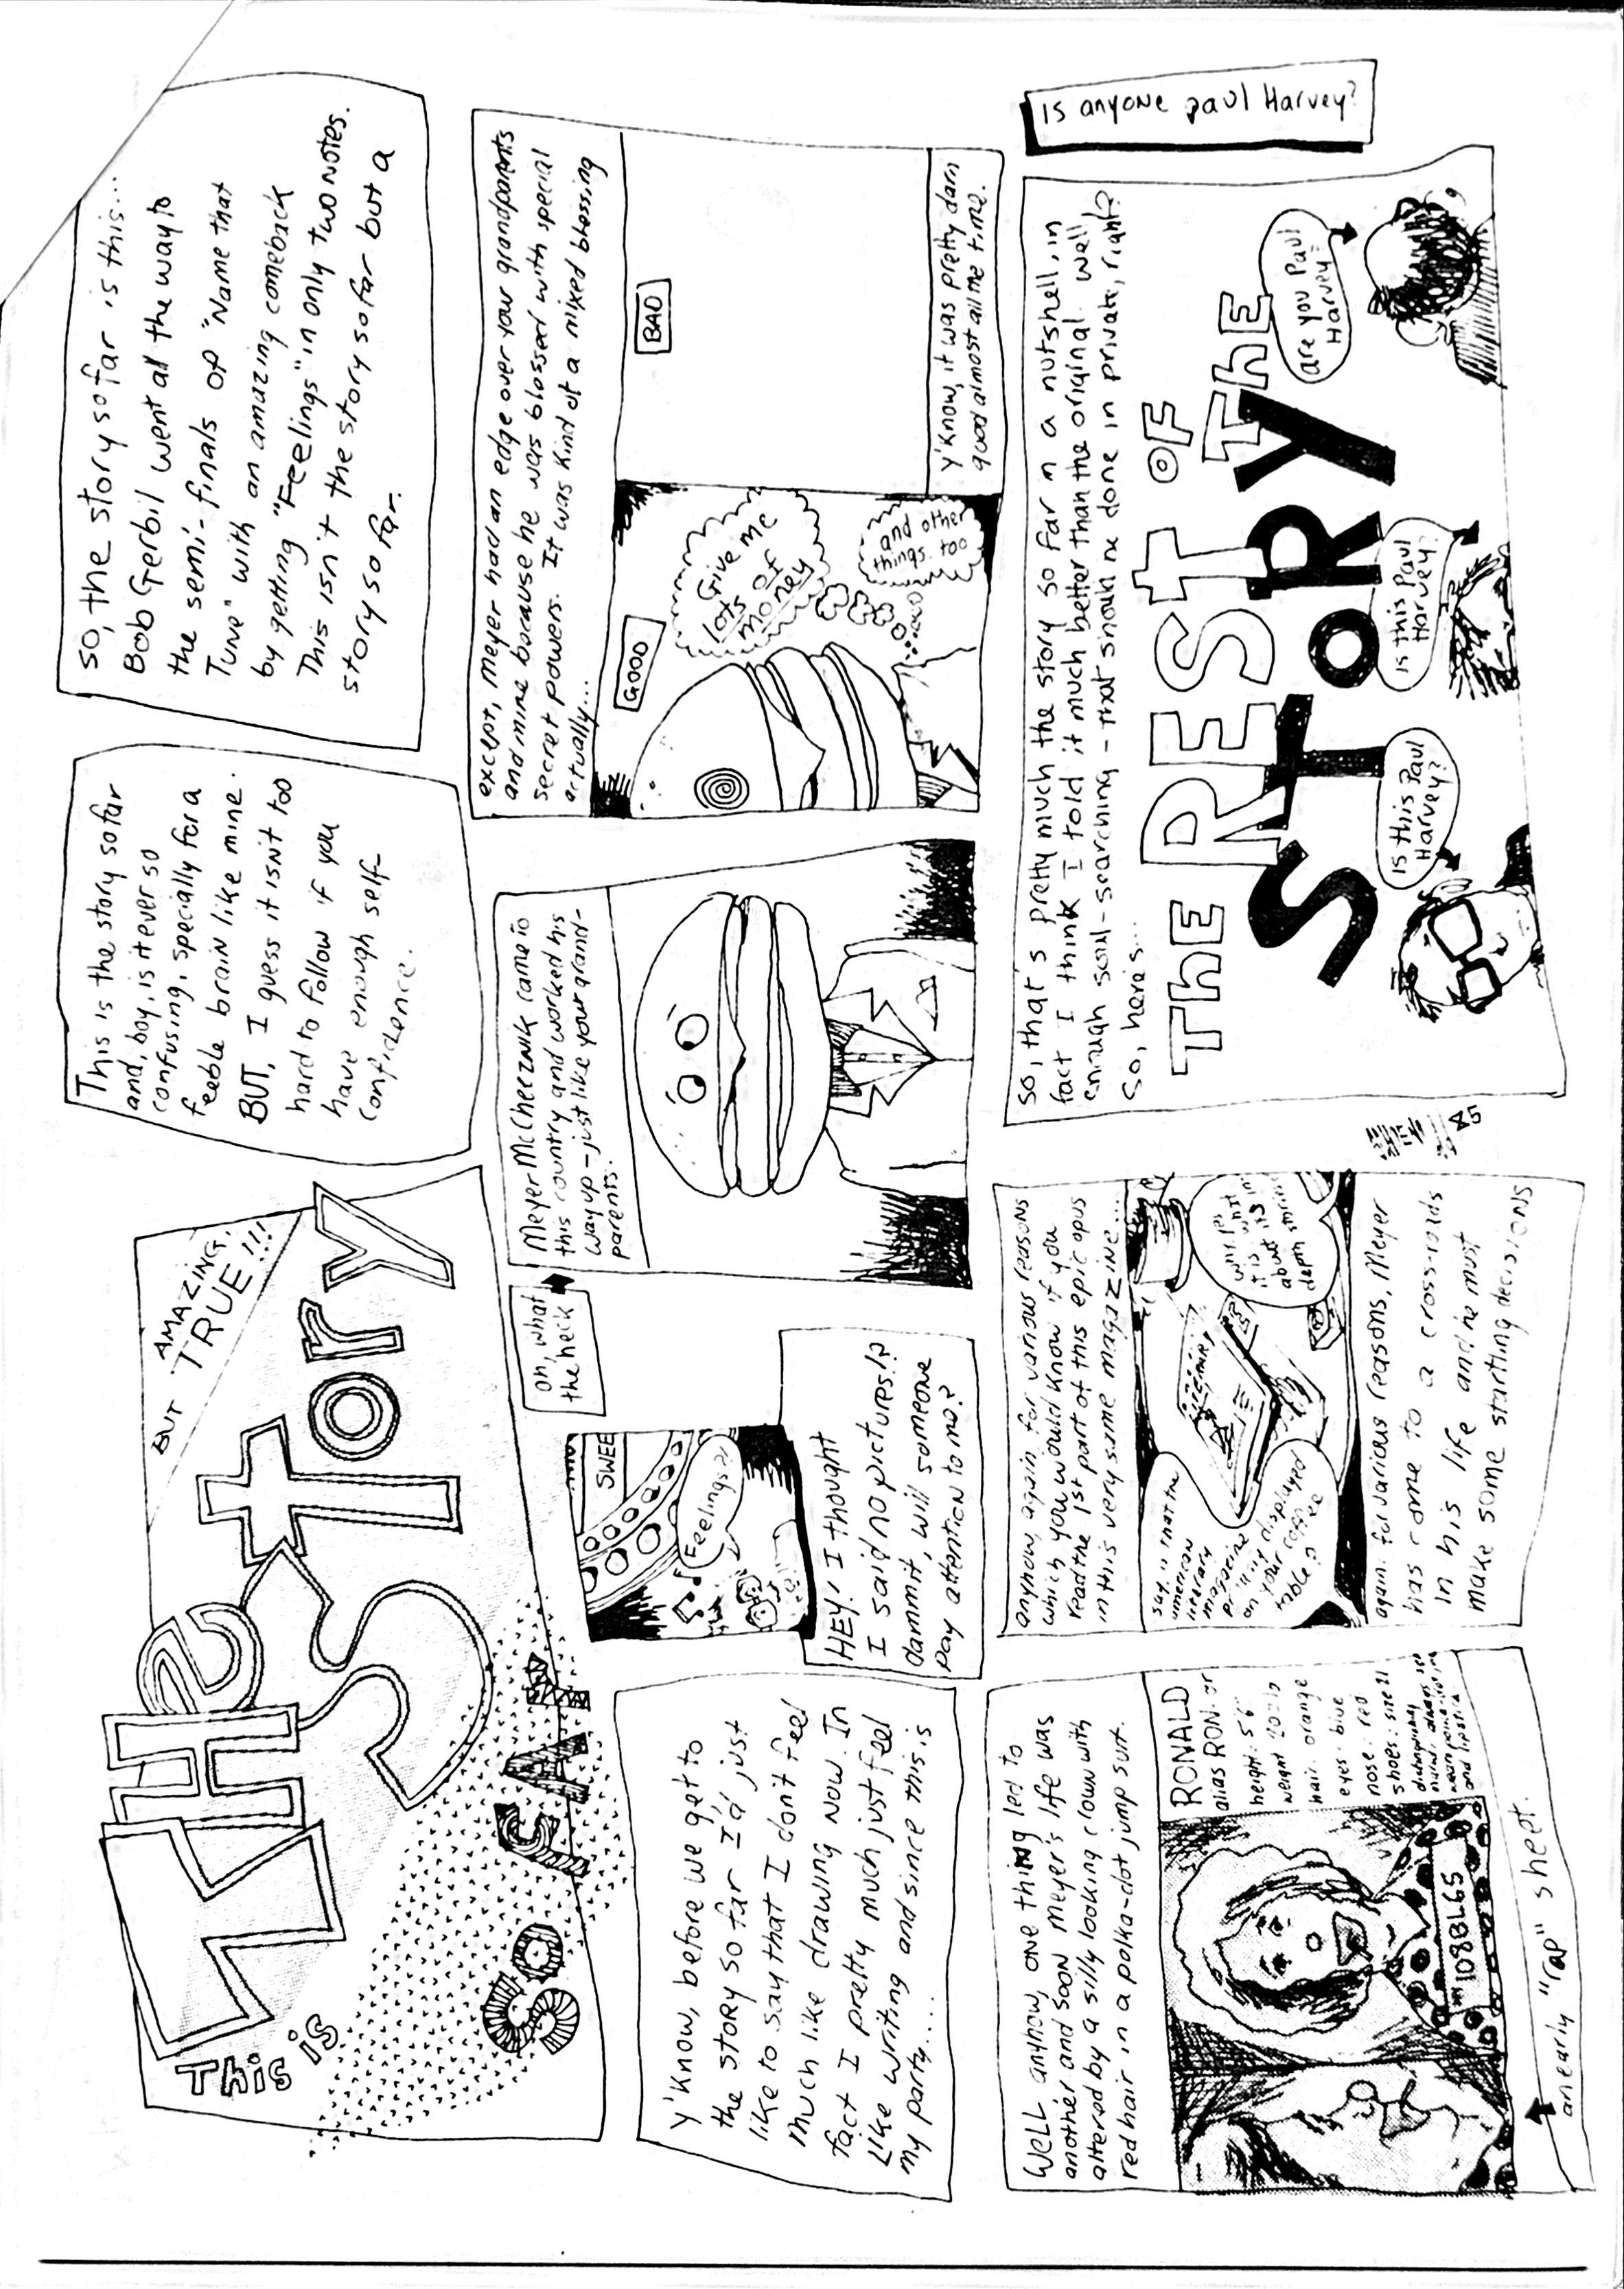 This is
THE STORY
SO FAR
BUT AMAZING,
TRUE!!!
This is the story so far
and, boy, is it ever so
confusing, specially for a
feeble brain like mine.
BUT, I guess it isn't too
hard to follow if you
have enough self-
confidence.
so, the story so far is this...
Bob Gerbil went all the way to
the semi-finals of "Name that
Tune" with an amazing comeback
by getting "Feelings" in only two notes.
This isn't the story so far but a
story so far.
Y'know, before we get to
the story so far I'd just
like to say that I don't feel
much like drawing now. In
fact I pretty much just feel
like writing and since this is
my party....
SWEE
Feelings?
HEY! I thought
I said no pictures!?
dammit, will someone
pay attention to me?
oh, what
the heck
Meyer McCheeznik came to
this country and worked his
way up - just like your grand-
parents.
except, Meyer had an edge over your grandparents
and mine because he was blessed with special
secret powers. It was kind of a mixed blessing
actually...
GOOD
Give me
lots of
money
and other
things too
BAD
Y'know, it was pretty darn
good almost all the time.
Well anyhow, one thing led to
another and soon Meyer's life was
altered by a silly looking clown with
red hair in a polka-dot jump suit.
RONALD
alias RON. or
height: 5'6"
weight
hair: orange
eyes: blue
nose: red
shoes: size 21
and lipstick
108BL65
an early "rap" sheet.
anyhow, again for various reasons
which you would know if you
read the 1st part of this epic opus
in this very same magazine...
say, is that the
american
literary
magazine
on your coffee
table?
why yes
it is what
about its in
depth stories
again for various reasons, Meyer
has come to a cross-roads
in his life and he must
make some startling decisions
85
So, that's pretty much the story so far in a nutshell, in
fact I think I told it much better than the original. well,
enough soul-searching - that should be done in private, right?
So, here's...
THE REST OF
THE
STORY
Is this Paul
Harvey?
Is this Paul
Harvey?
are you Paul
Harvey?
Is anyone paul Harvey?